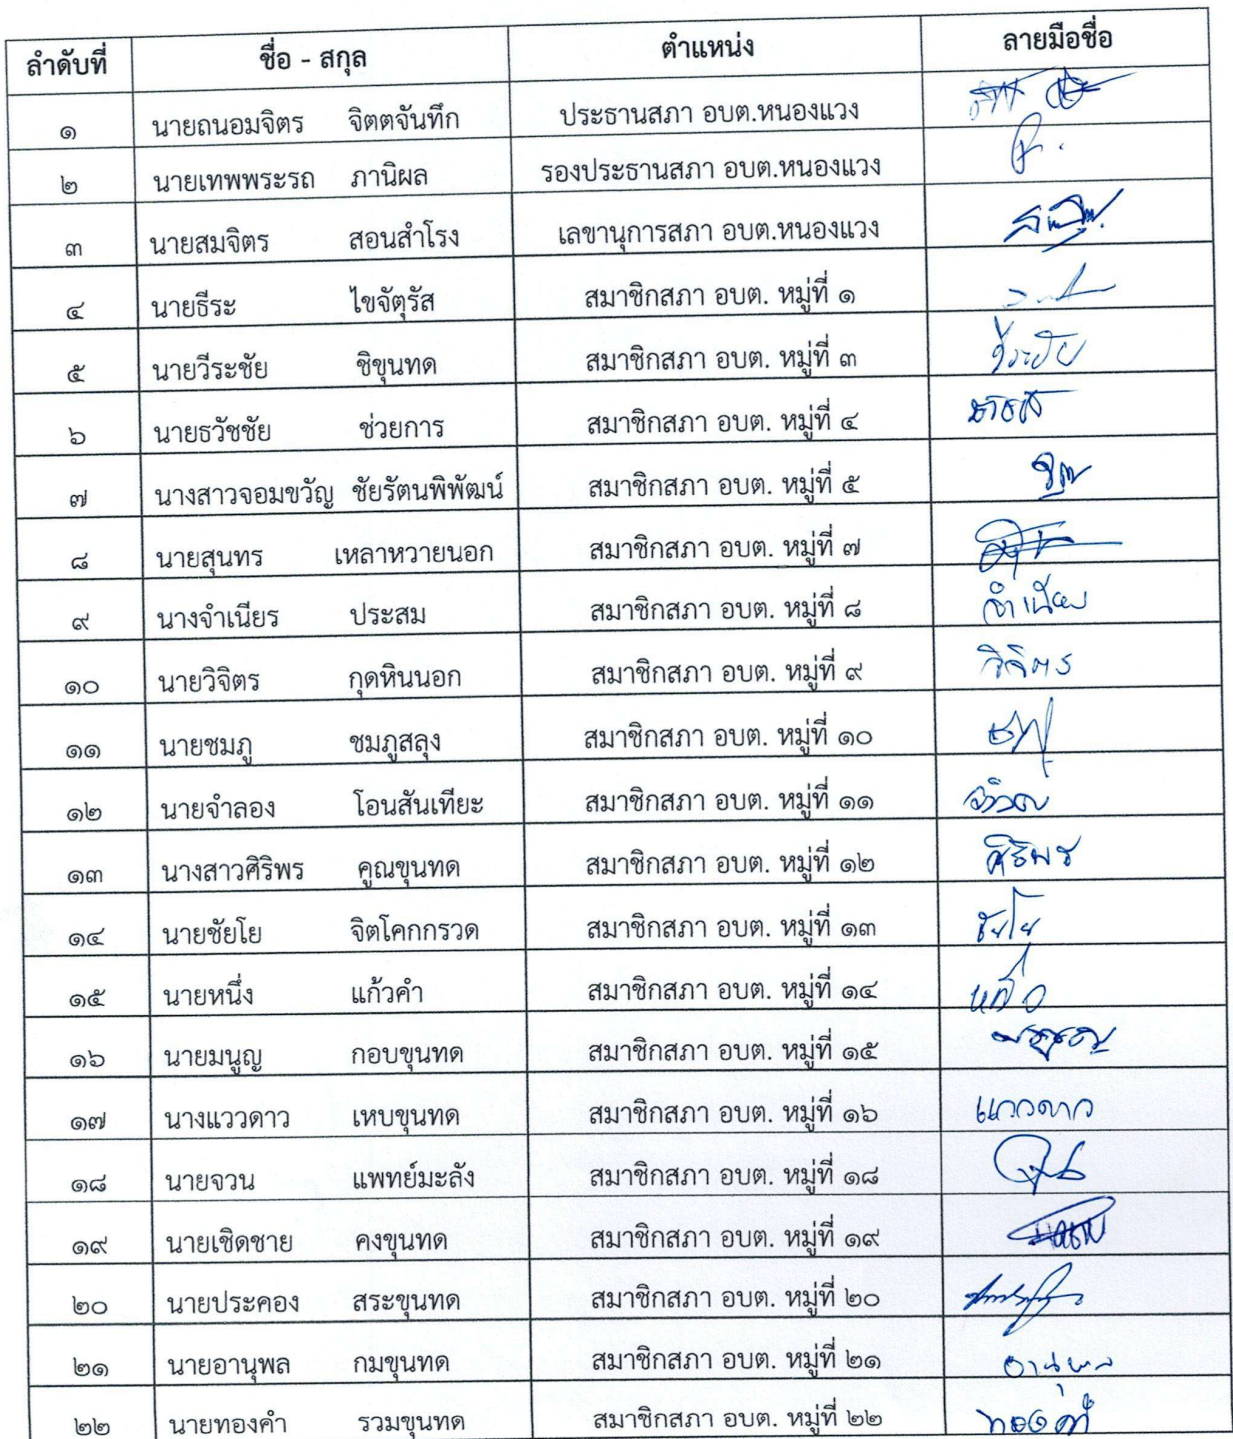 ลำดับที่ ชื่อ - สกุล ตำแหน่ง ลายมือชื่อ
๑ นายถนอมจิตร จิตตจันทึก ประธานสภา อบต.หนองแวง
๒ นายเทพพระรถ ภานิผล รองประธานสภา อบต.หนองแวง
๓ นายสมจิตร สอนสำโรง เลขานุการสภา อบต.หนองแวง
๔ นายธีระ ไขจัตุรัส สมาชิกสภา อบต. หมู่ที่ ๑
๕ นายวีระชัย ชิขุนทด สมาชิกสภา อบต. หมู่ที่ ๓ วีระชัย
๖ นายธวัชชัย ช่วยการ สมาชิกสภา อบต. หมู่ที่ ๔
๗ นางสาวจอมขวัญ ชัยรัตนพิพัฒน์ สมาชิกสภา อบต. หมู่ที่ ๕
๘ นายสุนทร เหลาหวายนอก สมาชิกสภา อบต. หมู่ที่ ๗
๙ นางจำเนียร ประสม สมาชิกสภา อบต. หมู่ที่ ๘ จำเนียร
๑๐ นายวิจิตร กุดหินนอก สมาชิกสภา อบต. หมู่ที่ ๙ วิจิตร
๑๑ นายชมภู ชมภูสลุง สมาชิกสภา อบต. หมู่ที่ ๑๐
๑๒ นายจำลอง โอนสันเทียะ สมาชิกสภา อบต. หมู่ที่ ๑๑
๑๓ นางสาวศิริพร คูณขุนทด สมาชิกสภา อบต. หมู่ที่ ๑๒ ศิริพร
๑๔ นายชัยโย จิตโคกกรวด สมาชิกสภา อบต. หมู่ที่ ๑๓ ชัยโย
๑๕ นายหนึ่ง แก้วคำ สมาชิกสภา อบต. หมู่ที่ ๑๔ หนึ่ง
๑๖ นายมนูญ กอบขุนทด สมาชิกสภา อบต. หมู่ที่ ๑๕
๑๗ นางแววดาว เหบขุนทด สมาชิกสภา อบต. หมู่ที่ ๑๖ แววดาว
๑๘ นายจวน แพทย์มะลัง สมาชิกสภา อบต. หมู่ที่ ๑๘
๑๙ นายเชิดชาย คงขุนทด สมาชิกสภา อบต. หมู่ที่ ๑๙
๒๐ นายประคอง สระขุนทด สมาชิกสภา อบต. หมู่ที่ ๒๐
๒๑ นายอานุพล กมขุนทด สมาชิกสภา อบต. หมู่ที่ ๒๑ อานุพล
๒๒ นายทองคำ รวมขุนทด สมาชิกสภา อบต. หมู่ที่ ๒๒ ทองคำ